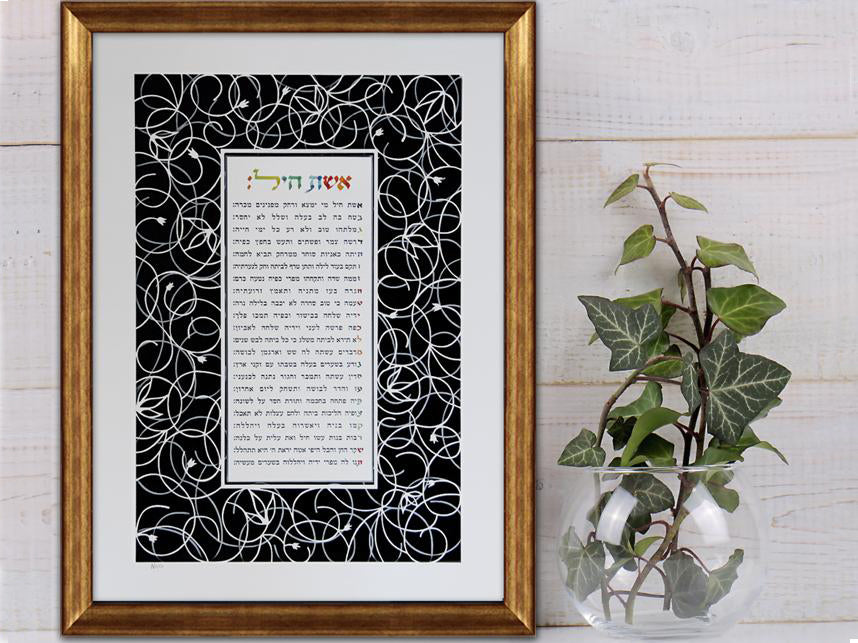 אשת חיל:
אשת חיל מי ימצא ורחק מפנינים מכרה:
בטח בה לב בעלה ושלל לא יחסר:
גמלתהו טוב ולא רע כל ימי חייה:
דרשה צמר ופשתים ותעש בחפץ כפיה:
היתה כאניות סוחר ממרחק תביא לחמה:
ותקם בעוד לילה ותתן טרף לביתה וחק לנערתיה:
זממה שדה ותקחהו מפרי כפיה נטעה כרם:
חגרה בעז מתניה ותאמץ זרועתיה:
טעמה כי טוב סחרה לא יכבה בלילה נרה:
ידיה שלחה בכישור וכפיה תמכו פלך:
כפה פרשה לעני וידיה שלחה לאביון:
לא תירא לביתה משלג כי כל ביתה לבש שנים:
מרבדים עשתה לה שש וארגמן לבושה:
נודע בשערים בעלה בשבתו עם זקני ארץ:
סדין עשתה ותמכר וחגור נתנה לכנעני:
עז והדר לבושה ותשחק ליום אחרון:
פיה פתחה בחכמה ותורת חסד על לשונה:
צופיה הליכות ביתה ולחם עצלות לא תאכל:
קמו בניה ויאשרוה בעלה ויהללה:
רבות בנות עשו חיל ואת עלית על כלנה:
שקר החן והבל היפי אשה יראת ה' היא תתהלל:
תנו לה מפרי ידיה ויהללוה בשערים מעשיה: